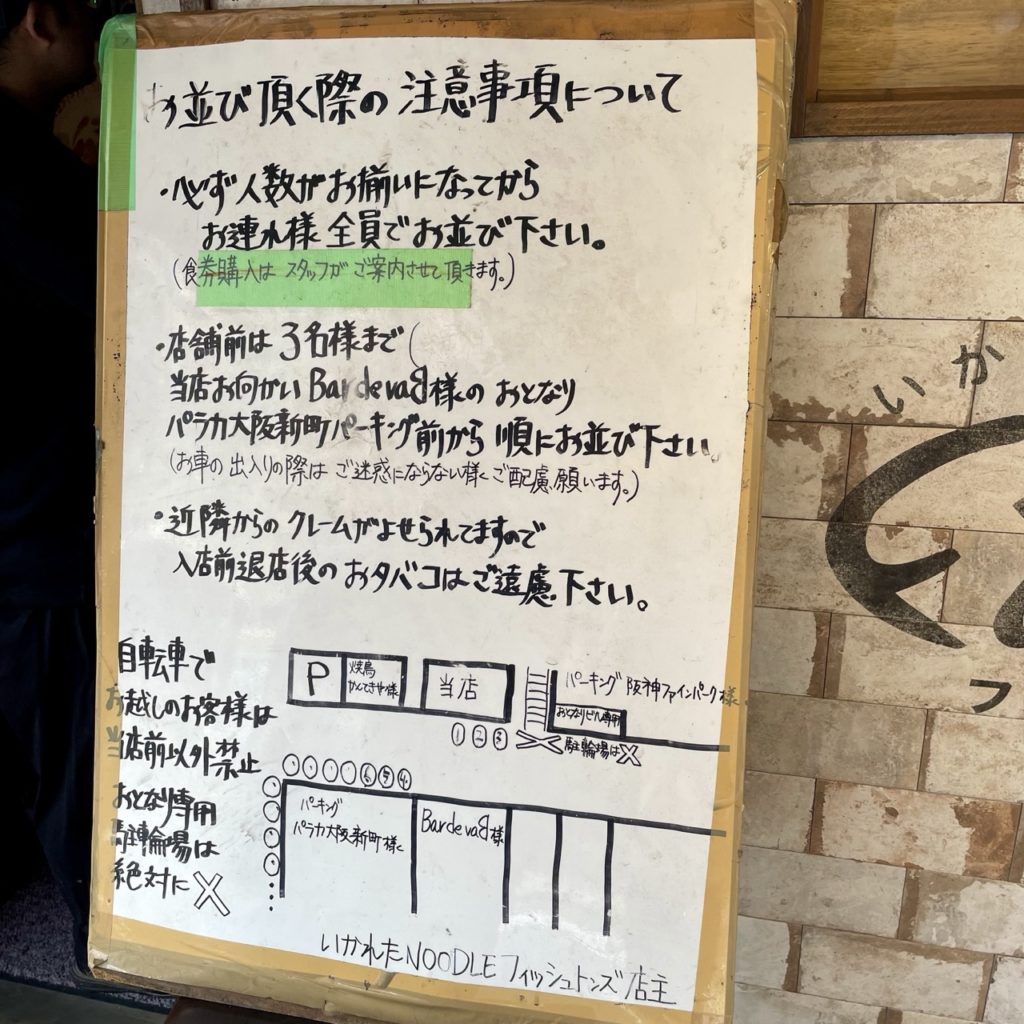 お並び頂く際の注意事項について
・必ず人数がお揃いになってから
お連れ様全員でお並び下さい。
(食券購入は スタッフが ご案内させて頂きます。)
・店舗前は3名様まで(
当店お向かい Bar de vaB様の おとなり
パラカ大阪新町パーキング前から 順にお並び下さい。
(お車の出入りの際は ご迷惑にならない様 ご配慮願います。)
・近隣からの クレームがよせられてますので
入店前退店後の おタバコは ご遠慮下さい。
自転車で
お越しのお客様は
当店前以外禁止
おとなり専用
駐輪場は
絶対に×
P
焼鳥
当店
パーキング 阪神ファインパーク様
おとなりビル専用
駐輪場は×
①②③
⑥⑤④
パーキング
パラカ大阪新町様
Bar de vaB様
いかれたNOODLE フィッシュトンズ 店主
いか
フ